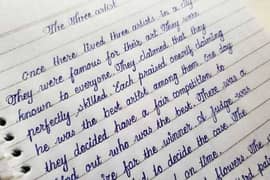 The three artist
Once there lived three artists in a city
They were famous for their art. They were
known to everyone. They claimed that they
perfectly skilled. Each praised
he was the best artist among them. One day
they decided have a fair competition to
find out who was the best. There was a
for the winner. A judge was
to decide the case. The
on time.
flowers. The